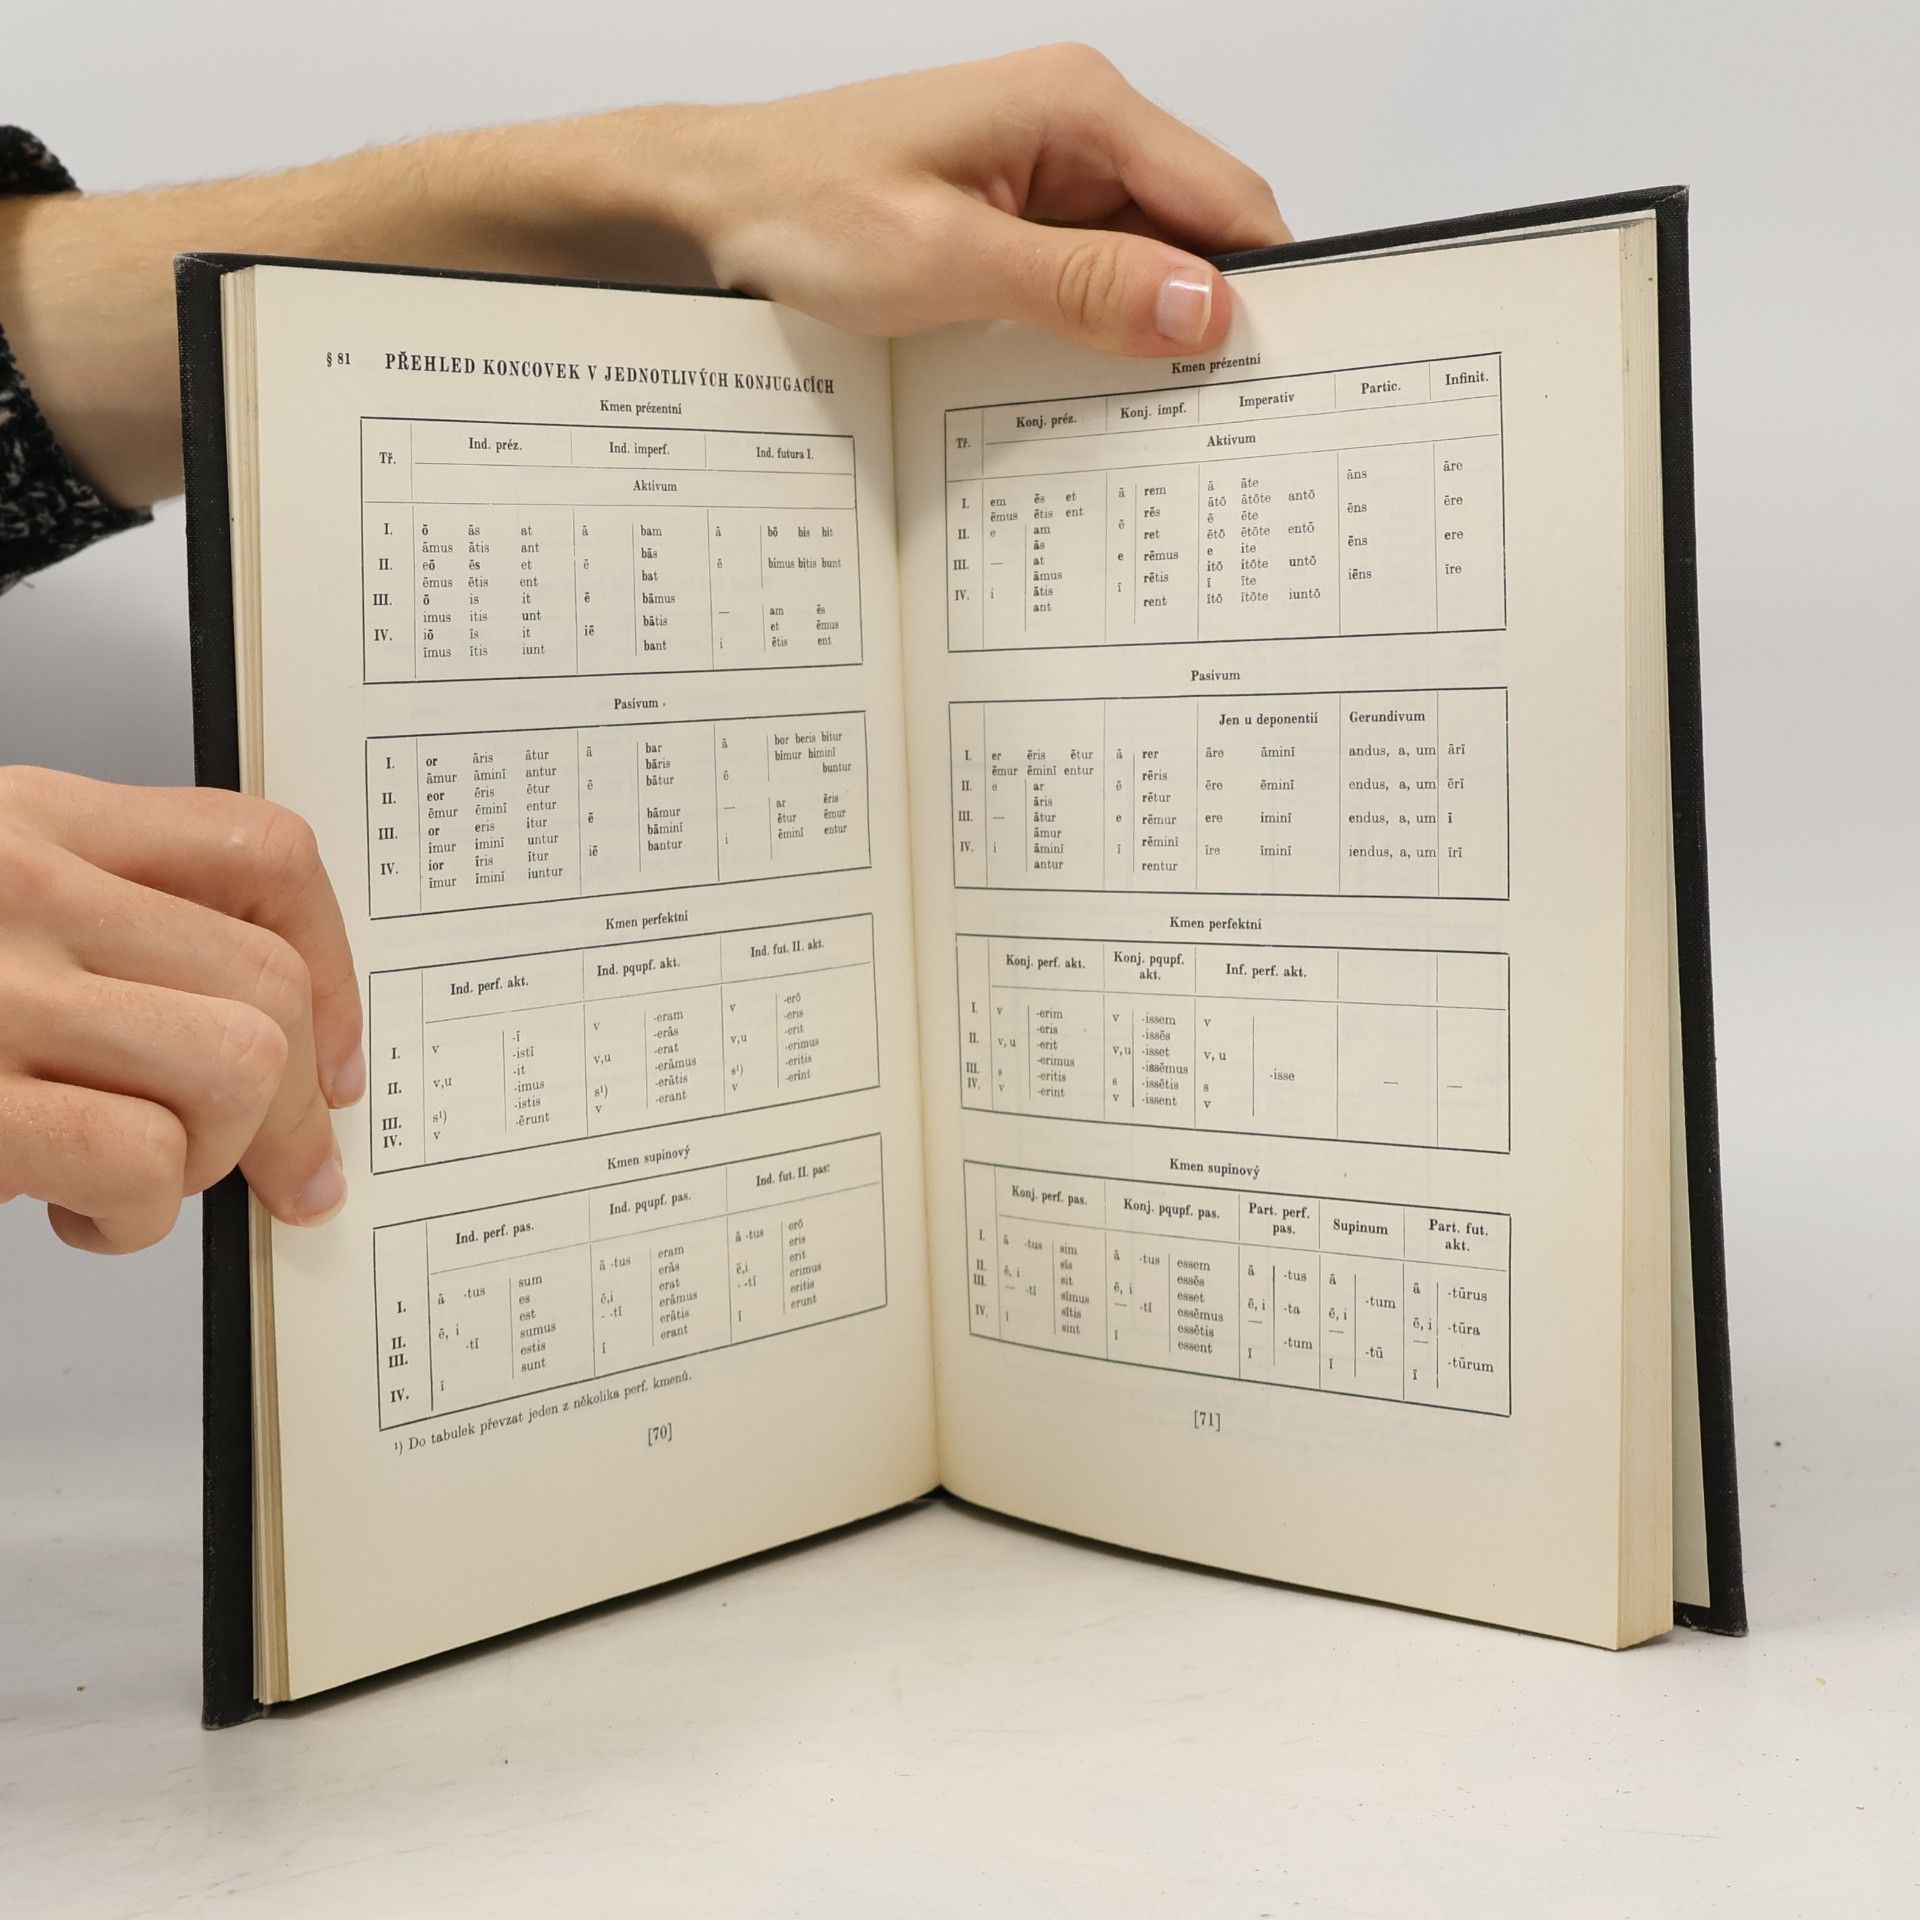 § 81 PŘEHLED KONCOVEK V JEDNOTLIVÝCH KONJUGACÍCH
Kmen prézentní
Tř. Ind. préz. Ind. imperf. Ind. futura I.
Aktivum
I. ō ās at ā bam ā bō bis bit
āmus ātis ant bās
II. eō ēs et ē bat ē bimus bitis bunt
ēmus ētis ent
III. ō is it ē bāmus — am ēs
imus itis unt bātis et ēmus
IV. iō īs it iē bant i ētis ent
īmus ītis iunt
Pasívum
I. or āris ātur ā bar ā bor beris bitur
āmur āminī antur bāris bimur biminī
II. eor ēris ētur ē bātur ē buntur
ēmur ēminī entur
III. or eris itur ē bāmur — ar ēris
imur iminī untur bāminī ētur ēmur
IV. ior īris ītur iē bantur i ēminī entur
īmur īminī iuntur
Kmen perfektní
Ind. perf. akt. Ind. pqupf. akt. Ind. fut. II. akt.
I. v -ī v -eram v -erō
-istī -erās -eris
II. v,u -it v,u -erat v,u -erit
-imus -erāmus -erimus
III. s¹) -istis s¹) -erātis s¹) -eritis
IV. v -ērunt v -erant v -erint
Kmen supinový
Ind. perf. pas. Ind. pqupf. pas. Ind. fut. II. pas.
I. ā -tus sum ā -tus eram ā -tus erō
es erās eris
II. ē, i est ē,i erat ē,i erit
III. -tī sumus -tī erāmus -tī erimus
estis erātis eritis
IV. ī sunt ī erant ī erunt
¹) Do tabulek převzat jeden z několika perf. kmenů.
[70]
Kmen prézentní
Tř. Konj. préz. Konj. impf. Imperativ Partic. Infinit.
Aktivum
I. em ēs et ā rem ā āte āns āre
ēmus ētis ent rēs ātō ātōte antō
II. e am ē ret ē ēte ēns ēre
ās ētō ētōte entō
III. — at e rēmus e ite ēns ere
āmus rētis itō itōte untō
IV. i ātis ī rent ī īte iēns īre
ant ītō ītōte iuntō
Pasívum
Jen u deponentií Gerundivum
I. er ēris ētur ā rer āre āminī andus, a, um ārī
ēmur ēminī entur rēris
II. e ar ē rētur ēre ēminī endus, a, um ērī
āris
III. — ātur e rēmur ere iminī endus, a, um ī
āmur rēminī
IV. i āminī ī rentur īre īminī iendus, a, um īrī
antur
Kmen perfektní
Konj. perf. akt. Konj. pqupf. akt. Inf. perf. akt.
I. v -erim v -issem v
-eris -issēs
II. v, u -erit v,u -isset v, u
-erimus -issēmus -isse — —
III. s -eritis s -issētis s
IV. v -erint v -issent v
Kmen supinový
Konj. perf. pas. Konj. pqupf. pas. Part. perf. pas. Supinum Part. fut. akt.
I. ā -tus sim ā -tus essem ā -tus ā ā -tūrus
sīs essēs -tum
II. ē, i sit ē, i esset ē, i -ta ē, i ē, i -tūra
III. — -tī sīmus — -tī essēmus — — —
sītis essētis -tū
IV. ī sint ī essent ī -tum ī ī -tūrum
[71]